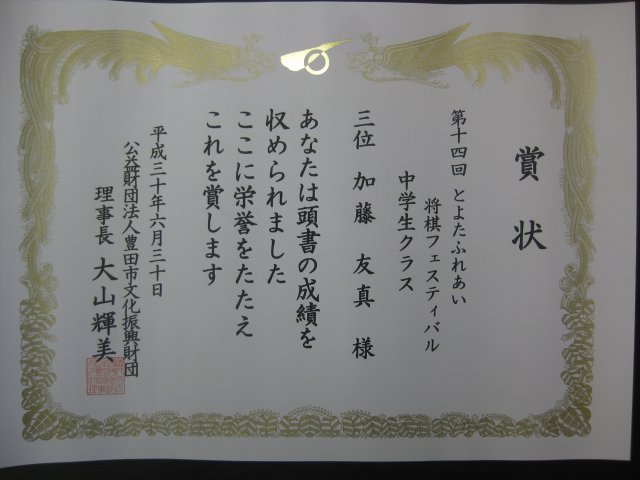 賞状
第十四回 とよたふれあい
将棋フェスティバル
中学生クラス
三位 加藤 友真 様
あなたは頭書の成績を
収められました
ここに栄誉をたたえ
これを賞します
平成三十年六月三十日
公益財団法人豊田市文化振興財団
理事長 大山輝美